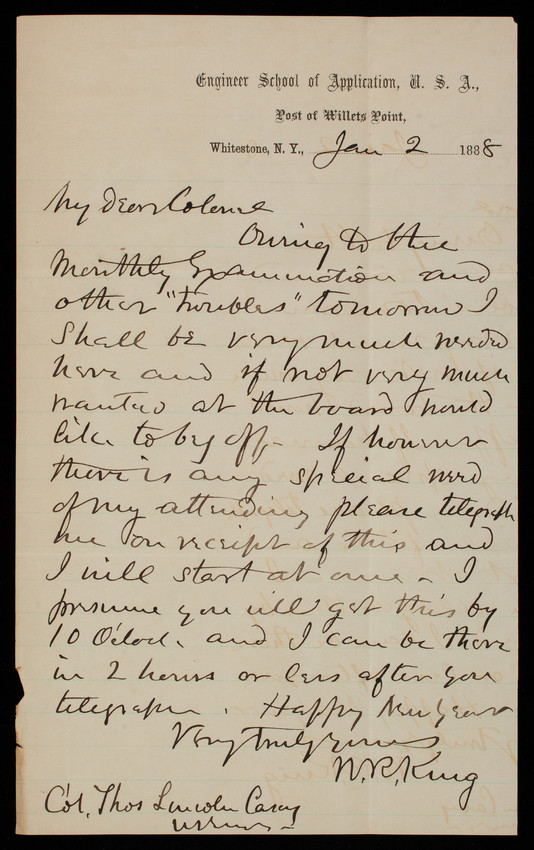 Engineer School of Application, U. S. A.,
Post of Willets Point,
Whitestone, N. Y., Jan 2 1888
My dear Colonel
Owing to the
Monthly Examination and
other "troubles" tomorrow I
shall be very much needed
here and if not very much
wanted at the board would
like to beg off. If however
there is any special need
of my attending please telegraph
me on receipt of this and
I will start at once. I
presume you will get this by
10 O'clock and I can be there
in 2 hours or less after you
telegraph. Happy New Year
Very truly yours
W.R. King
Col. Thos Lincoln Casey